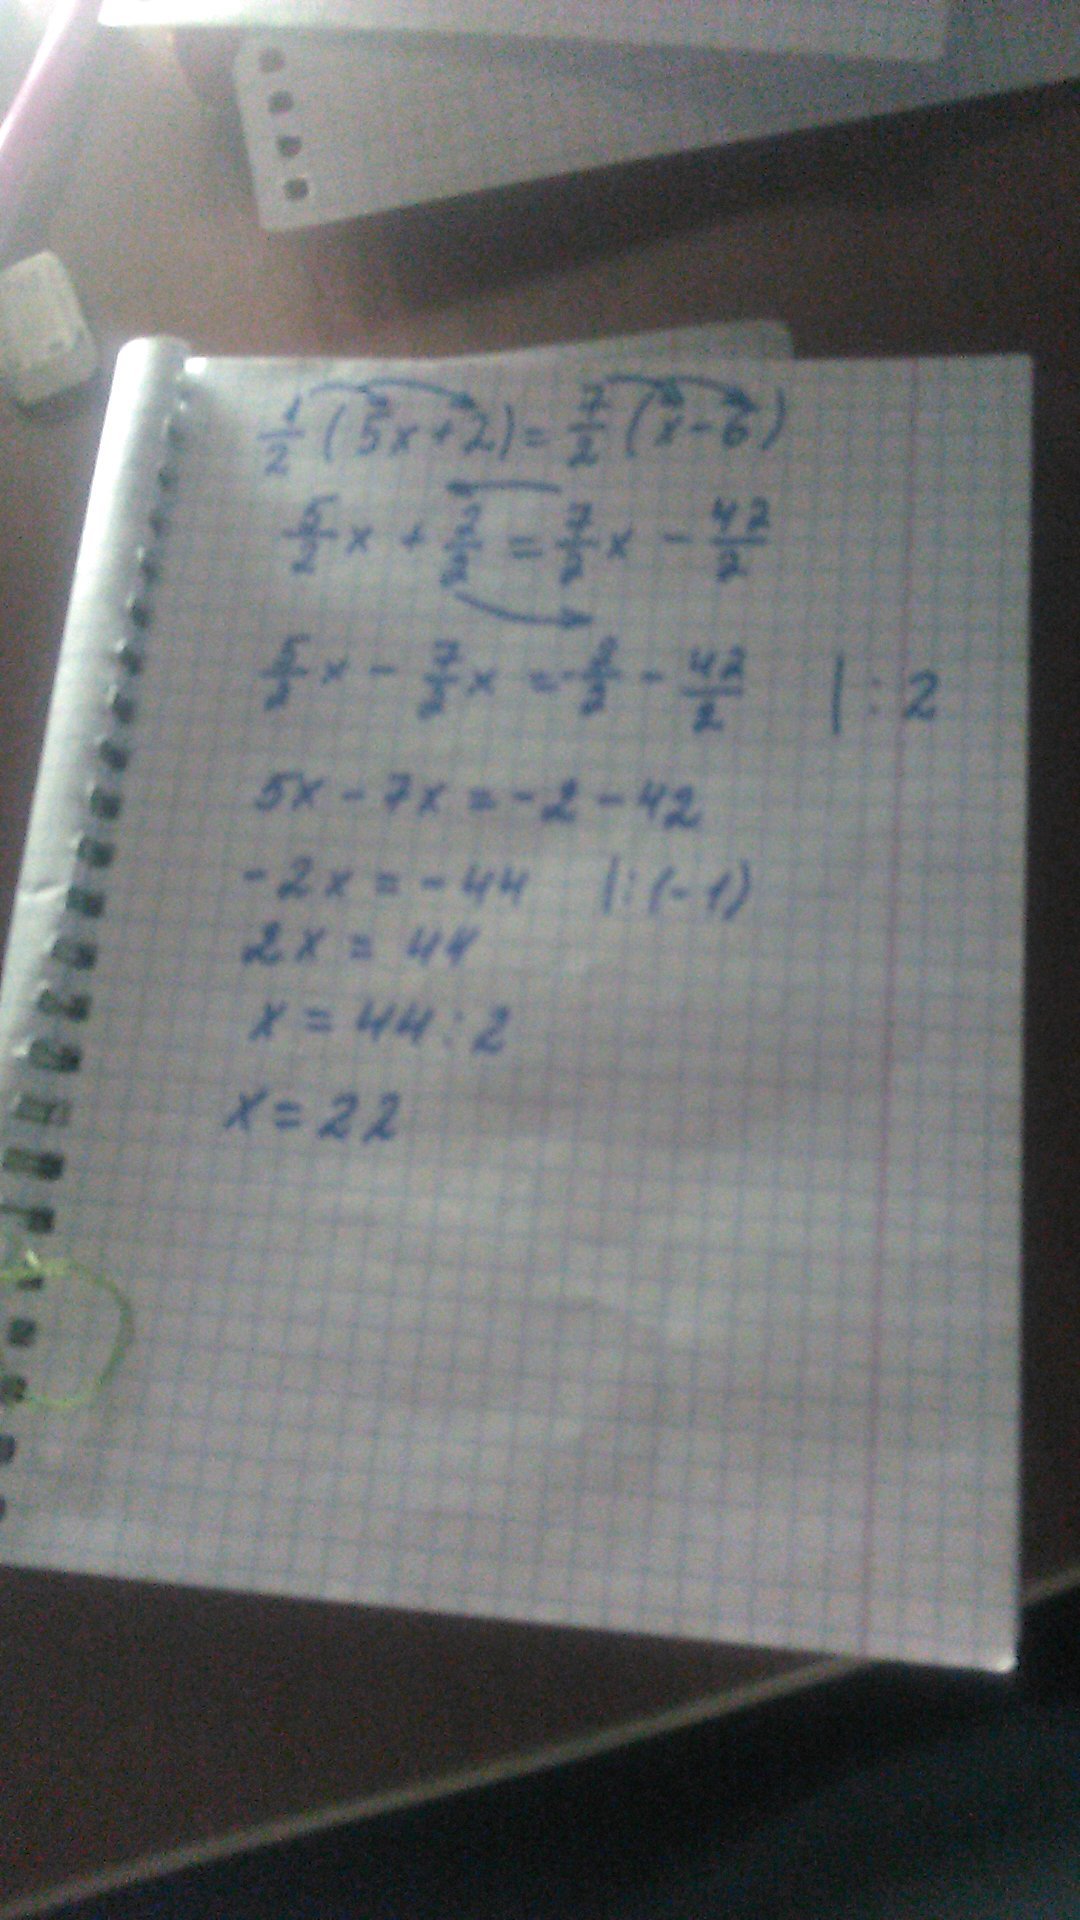 1/2 (5x+2) = 7/2 (x-6)
5/2 x + 2/2 = 7/2 x - 42/2
5/2 x - 7/2 x = -2/2 - 42/2 | : 2
5x - 7x = -2 - 42
-2x = -44 | : (-1)
2x = 44
x = 44 : 2
x = 22